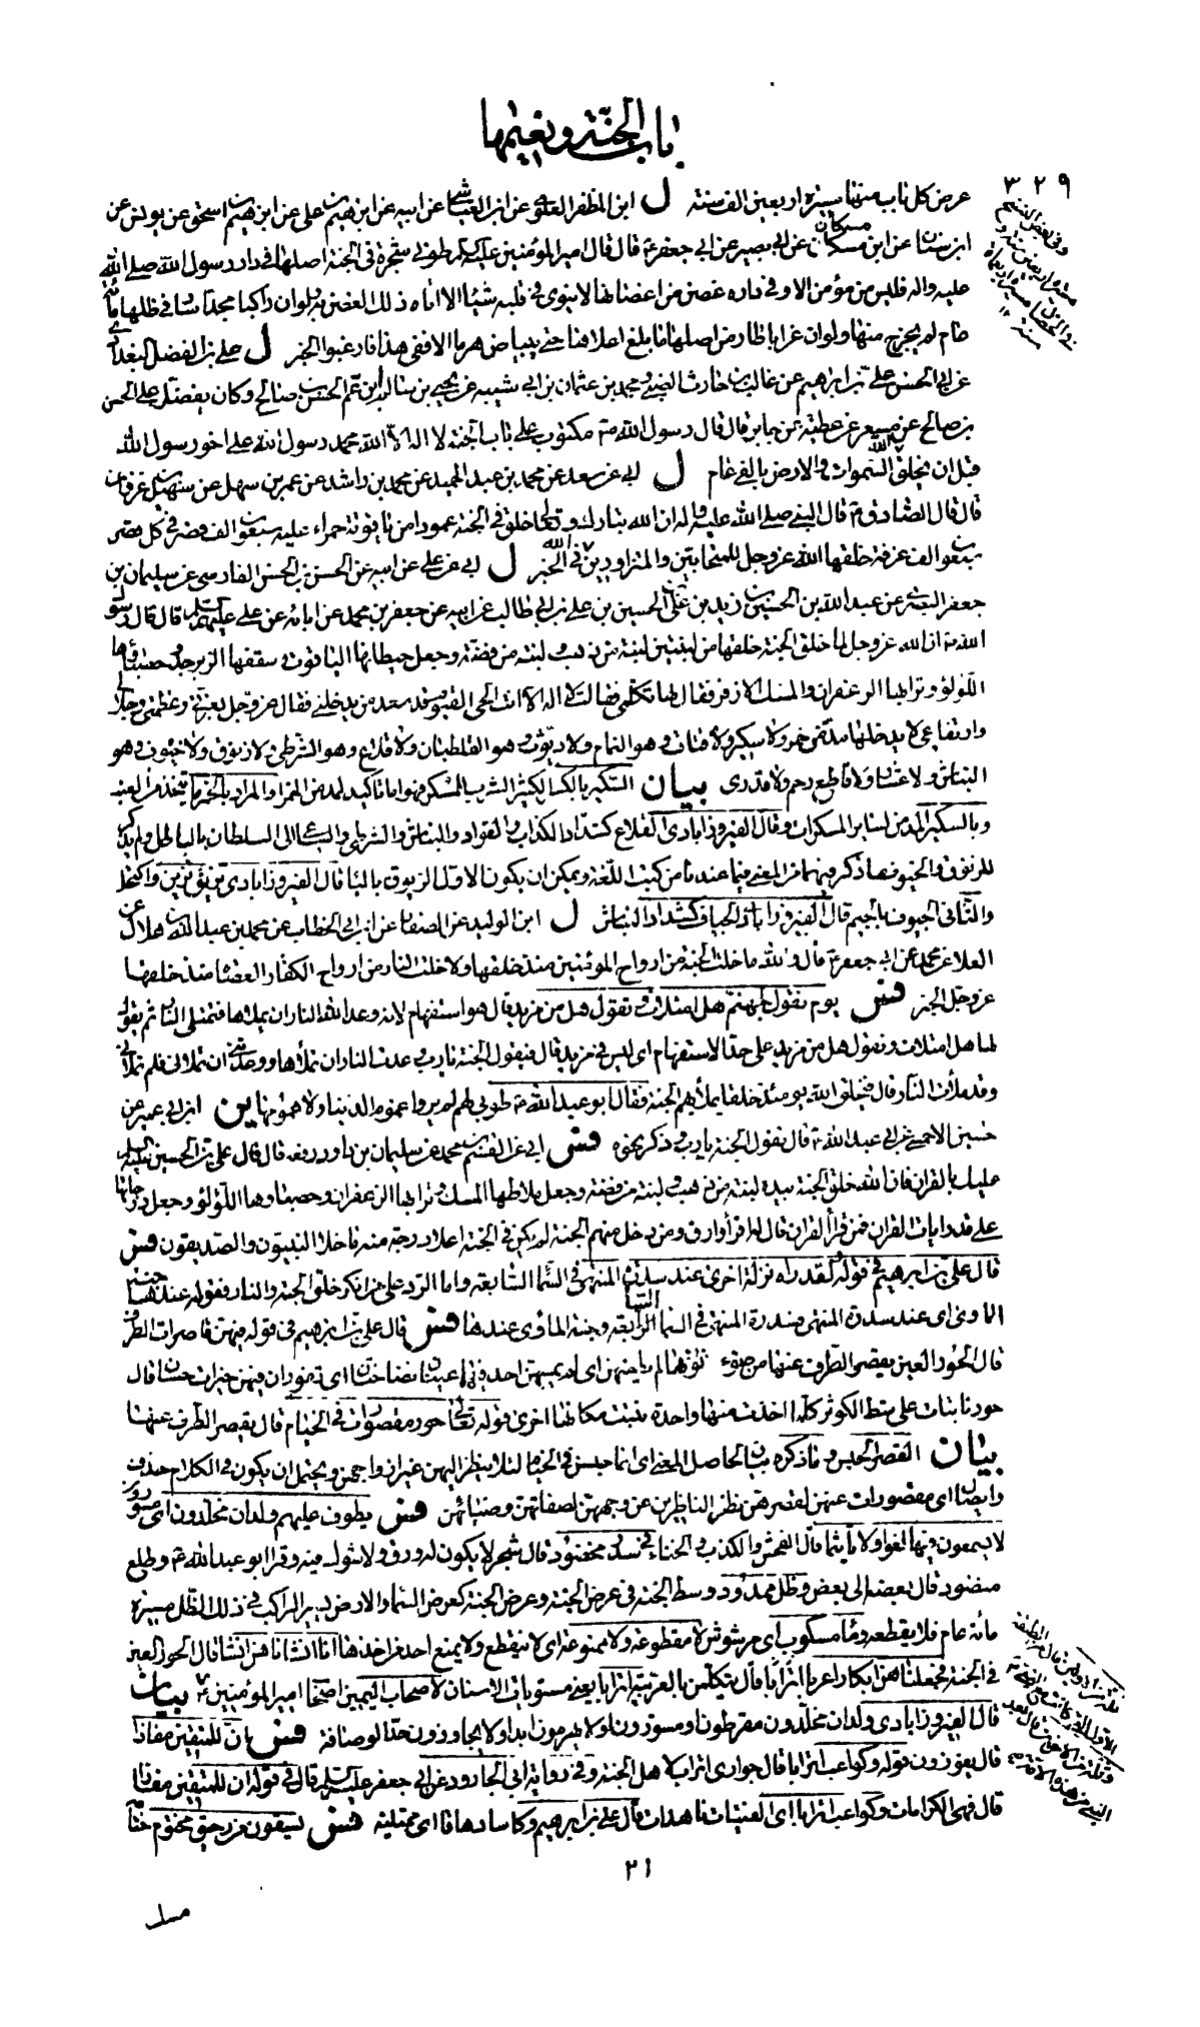 باب الجنّة و نعيمها
٣٢٩
عرض كل باب منها مسيرة اربعين الف سنة ل ابن المظفر العلوي عن ابن العياشي عن ابيه عن ابن هيثم علي عن ابن هيثم اسحق عن يونس عن
ابن سنان عن ابن مسكان عن ابي بصير عن ابي جعفر ع قال قال امير المؤمنين عليه السلم طوبى شجرة في الجنة اصلها في دار رسول الله صلى الله
عليه واله فليس من مؤمن الا و في داره غصن من اغصانها لا ينوي في قلبه شيئا الا اتاه ذلك الغصن به ولو ان راكبا مجدا سار في ظلها مائة
عام لم يخرج منها ولو ان غرابا طار من اصلها ما بلغ اعلاها حتى يبياض هرما الا ففي هذا فارغبوا الخبر ل علي بن الفضل البغدادي
عن ابي الحسن علي بن ابراهيم عن غالب بن حارث الضبي و محمد بن عثمان بن ابي شيبة عن يحيى بن سالم ابن عم الحسن بن صالح وكان يفضل على الحسن
بن صالح عن مسعر عن عطية عن جابر قال قال رسول الله ص مكتوب على باب الجنة لا اله الا الله محمد رسول الله علي اخو رسول الله
قبل ان يخلق الله السموات و الارض بالفي عام ل ابي عن سعد عن محمد بن عبد الحميد عن محمد بن راشد عن عمر بن سهل عن سهيل بن غزوان
قال قال الصادق ع قال النبي صلى الله عليه واله ان الله تبارك و تعالى خلق في الجنة عمودا من ياقوتة حمراء عليه سبعون الف قصر في كل قصر
سبعون الف غرفة خلقها الله عز وجل للمتحابين والمتزاورين في الله الخبر ل ابي عن علي عن ابيه عن الحسن بن الحسن الفارسي عن سليمان بن
جعفر البصري عن عبد الله بن الحسين بن زيد بن علي بن الحسين بن علي بن ابي طالب عن ابيه عن جعفر بن محمد عن ابائه عن علي عليهم السلم قال قال رسول
الله ص ان الله عز وجل لما خلق الجنة خلقها من لبنتين لبنة من ذهب و لبنة من فضة و جعل حيطانها الياقوت و سقفها الزبرجد و حصباؤها
اللؤلؤ و ترابها الزعفران و المسك الاذفر فقال لها تكلمي فقالت لا اله الا انت الحي القيوم قد سعد من يدخلني فقال عز وجل بعزتي و عظمتي و جلالي
و ارتفاعي لا يدخلها مدمن خمر ولا سكير ولا قتات و هو النمام ولا ديوث و هو القلطبان ولا قلاع و هو الشرطي ولا زنوق ولا خيوف و هو
النباش ولا عشار ولا قاطع رحم ولا قدري بيان السكير بالكسر الكثير الشرب للمسكر فهو اما تاكيد لمدمن الخمر او المراد بالخمر ما يتخذ من العنب
و بالسكير المدمن لسائر المسكرات و قال الفيروزابادي القلاع كشداد الكذاب و القواد و النباش و الشرطي و الساعي الى السلطان بالباطل ولم يذكر
للزنوق و الخيوف ما ذكر فيهما من المعنى فيما عندنا من كتب اللغة و يمكن ان يكون الاول الزيوق بالياء قال الفيروزابادي تزيق تزين و اكتحل
والثاني الجيوف بالجيم قال الفيروزابادي الجياف كشداد النباش ل ابن الوليد عن الصفار عن ابن ابي الخطاب عن محمد بن عبد الله بن هلال عن
العلا عن محمد عن ابي جعفر ع قال والله ما خلت الجنة من ارواح المؤمنين منذ خلقها ولا خلت النار من ارواح الكفار العصاة منذ خلقها
عز وجل الخبر فس يوم نقول لجهنم هل امتلات و تقول هل من مزيد قال هو استفهام لانه وعد الله النار ان يملاها فتمتلي النار ثم يقول
لها هل امتلات و تقول هل من مزيد على حد الاستفهام اي ليس في مزيد قال فتقول الجنة يا رب وعدت النار ان تملأها و وعدتني ان تملاني فلم تملاني
و قد ملأت النار قال فيخلق الله يومئذ خلقا يملأ بهم الجنة فقال ابو عبد الله ع طوبى لهم لم يروا غموم الدنيا ولا همومها ين ابن ابي عمير عن
حسين الاحمسي عن ابي عبد الله ع قال تقول الجنة يا رب و ذكر نحوه فس ابي عن القسم بن محمد عن سليمان بن داود رفعه قال قال علي بن الحسين عليه السلم
عليك بالقران فان الله خلق الجنة بيده لبنة من ذهب و لبنة من فضة و جعل ملاطها المسك و ترابها الزعفران و حصباؤها اللؤلؤ و جعل درجاتها
على قدر ايات القران فمن قرأ القران قال له اقرأ وارق و من دخل منهم الجنة لم يكن في الجنة اعلا درجة منه ما خلا النبيون و الصديقون فس
قال علي بن ابراهيم في قوله و لقد راه نزلة اخرى عند سدرة المنتهى في السماء السابعة و اما الرد على من انكر خلق الجنة و النار فقوله عندها جنة
الماوى اي عند سدرة المنتهى فسدرة المنتهى في السماء السابعة و جنة الماوى عندها فس قال علي بن ابراهيم في قوله فيهن قاصرات الطرف
قال الحور العين يقصر الطرف عنها من ضوء نورها لم يطمثهن اي لم يمسهن احد فيهما عينان نضاختان اي تفوران فيهن خيرات حسان قال
حور نابتات على شط الكوثر كلما اخذت منها واحدة نبتت مكانها اخرى قوله تعالى حور مقصورات في الخيام قال يقصر الطرف عنها
بيان القصر الحبس و ما ذكره بيان لحاصل المعنى اي انما حبسن في الخيام لئلا ينظر اليهن غير ازواجهن و يحتمل ان يكون في الكلام حذف
و ايصال اي مقصورات عنهن لقصر نظر الناظرين عن وجوههن لصفائهن و ضيائهن فس يطوف عليهم ولدان مخلدون اي مسورون
لا يسمعون فيها لغوا ولا تاثيما قال الفحش و الكذب و الخناء في سدر مخضود قال شجر لا يكون له ورق ولا شوك فيه و قرا ابو عبد الله ع و طلع
منضود قال بعضه الى بعض و ظل ممدود وسط الجنة في عرض الجنة و عرض الجنة كعرض السماء و الارض يسير الراكب في ذلك الظل مسيرة
مائة عام فلا يقطعه و ماء مسكوب اي مرشوش لا مقطوعة ولا ممنوعة اي لا ينقطع ولا يمنع احد من اخذها انا انشاناهن انشاء قال الحور العين
في الجنة فجعلناهن ابكارا عربا اترابا قال يتكلمن بالعربية اترابا يعني مستويات الاسنان لاصحاب اليمين اصحاب امير المؤمنين ع بيان
قال الفيروزابادي ولدان مخلدون مقرطون او مسورون او لا يهرمون ابدا ولا يجاوزون حد الوصافة فس ان للمتقين مفازا
قال يفوزون قوله و كواعب اترابا قال جواري اتراب لاهل الجنة و في رواية ابي الجارود عن ابي جعفر عليه السلم قال في قوله ان للمتقين مفازا
قال فهي الكرامات و كواعب اترابا اي الفتيات ناهدات قال علي بن ابراهيم و كاسا دهاقا اي ممتلية فس يسقون من رحيق مختوم ختامه
٢١